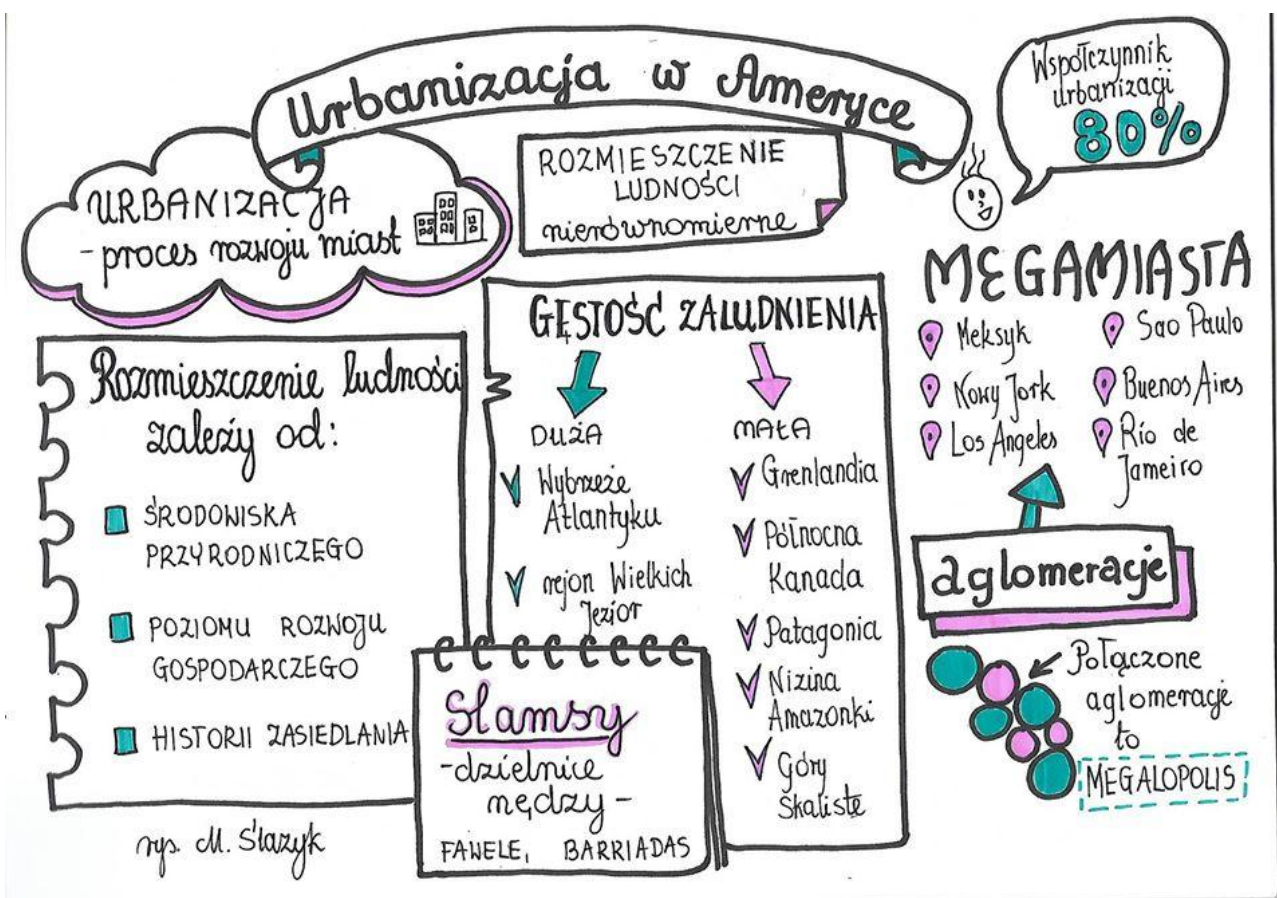 Urbanizacja w Ameryce
Współczynnik
urbanizacji
80%
URBANIZACJA
- proces rozwoju miast
ROZMIESZCZENIE
LUDNOŚCI
nierównomierne
Rozmieszczenie ludności
zależy od:
ŚRODOWISKA
PRZYRODNICZEGO
POZIOMU ROZWOJU
GOSPODARCZEGO
HISTORII ZASIEDLANIA
GĘSTOŚĆ ZALUDNIENIA
DUŻA
Wybrzeże
Atlantyku
rejon Wielkich
Jezior
MAŁA
Grenlandia
Północna
Kanada
Patagonia
Nizina
Amazonki
Góry
Skaliste
Slamsy
-dzielnice
nędzy-
FAWELE, BARRIADAS
MEGAMIASTA
Meksyk
Nowy Jork
Los Angeles
Sao Paulo
Buenos Aires
Rio de
Jameiro
aglomeracje
Połączone
aglomeracje
to
MEGALOPOLIS
rys. M. Ślazyk